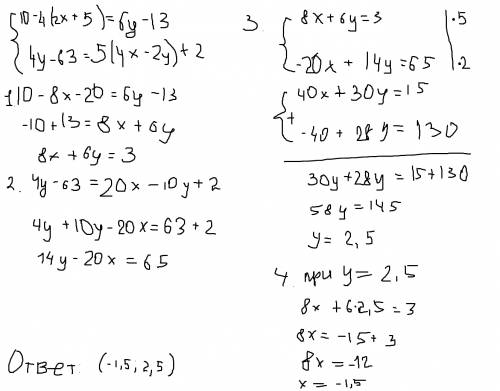 10-4(2x+5)=6y-13
4y-63=5(4x-2y)+2
1) 10-8x-20=6y-13
-10+13=8x+6y
8x+6y=3
2. 4y-63=20x-10y+2
4y+10y-20x=63+2
14y-20x=65
3 8x+6y=3 |·5
-20x+14y=65 |·2
40x+30y=15
+
-40+28y=130
30y+28y=15+130
58y=145
y=2,5
4. при y=2,5
8x+6·2,5=3
8x=-15+3
8x=-12
x=-1,5
Ответ: (-1,5; 2,5)